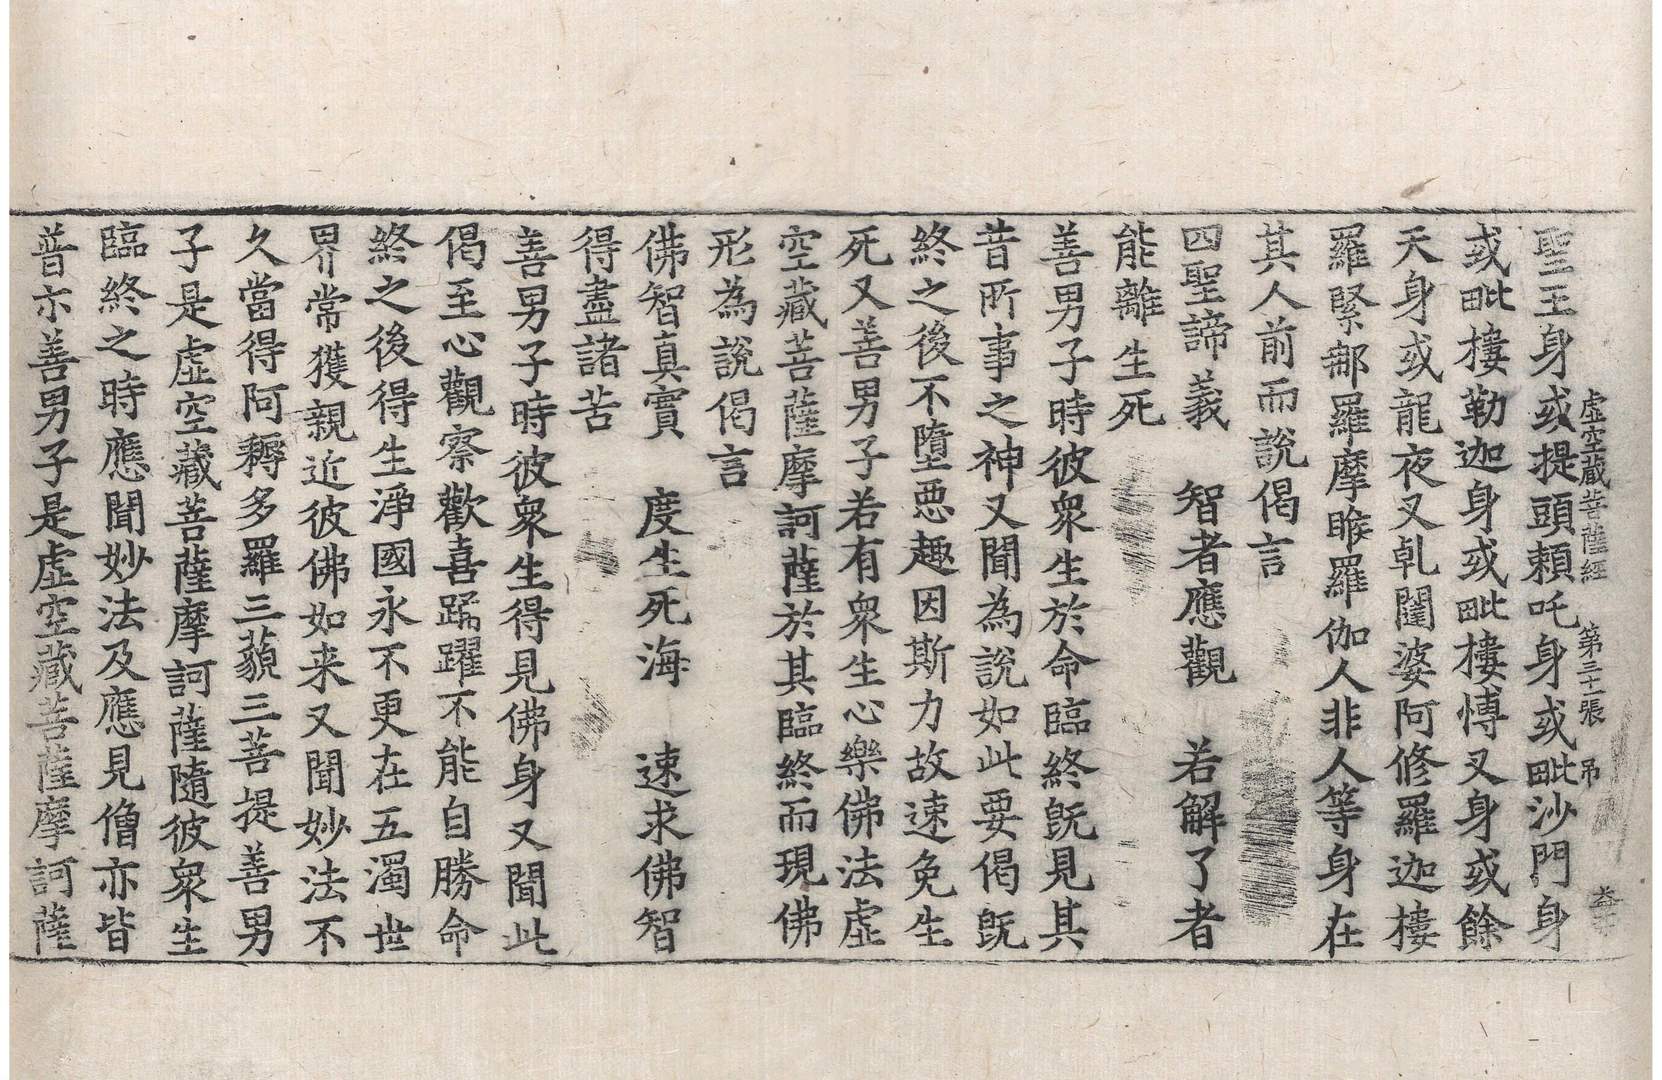 虛空藏菩薩經　第三十一張　吊
聖王身或提頭賴吒身或毗沙門身
或毗樓勒迦身或毗樓博叉身或餘
天身或龍夜叉乹闥婆阿修羅迦樓
羅緊那羅摩睺羅伽人非人等身在
其人前而說偈言
四聖諦義　智者應觀　若解了者
能離生死
善男子時彼衆生於命臨終旣見其
昔所事之神又聞為說如此要偈旣
終之後不墮惡趣因斯力故速免生
死又善男子若有衆生心樂佛法虛
空藏菩薩摩訶薩於其臨終而現佛
形為說偈言
佛智真實　度生死海　速求佛智
得盡諸苦
善男子時彼衆生得見佛身又聞此
偈至心觀察歡喜踊躍不能自勝命
終之後得生淨國永不更在五濁世
界常獲親近彼佛如来又聞妙法不
久當得阿耨多羅三藐三菩提善男
子是虛空藏菩薩摩訶薩隨彼衆生
臨終之時應聞妙法及應見僧亦皆
普示善男子是虛空藏菩薩摩訶薩